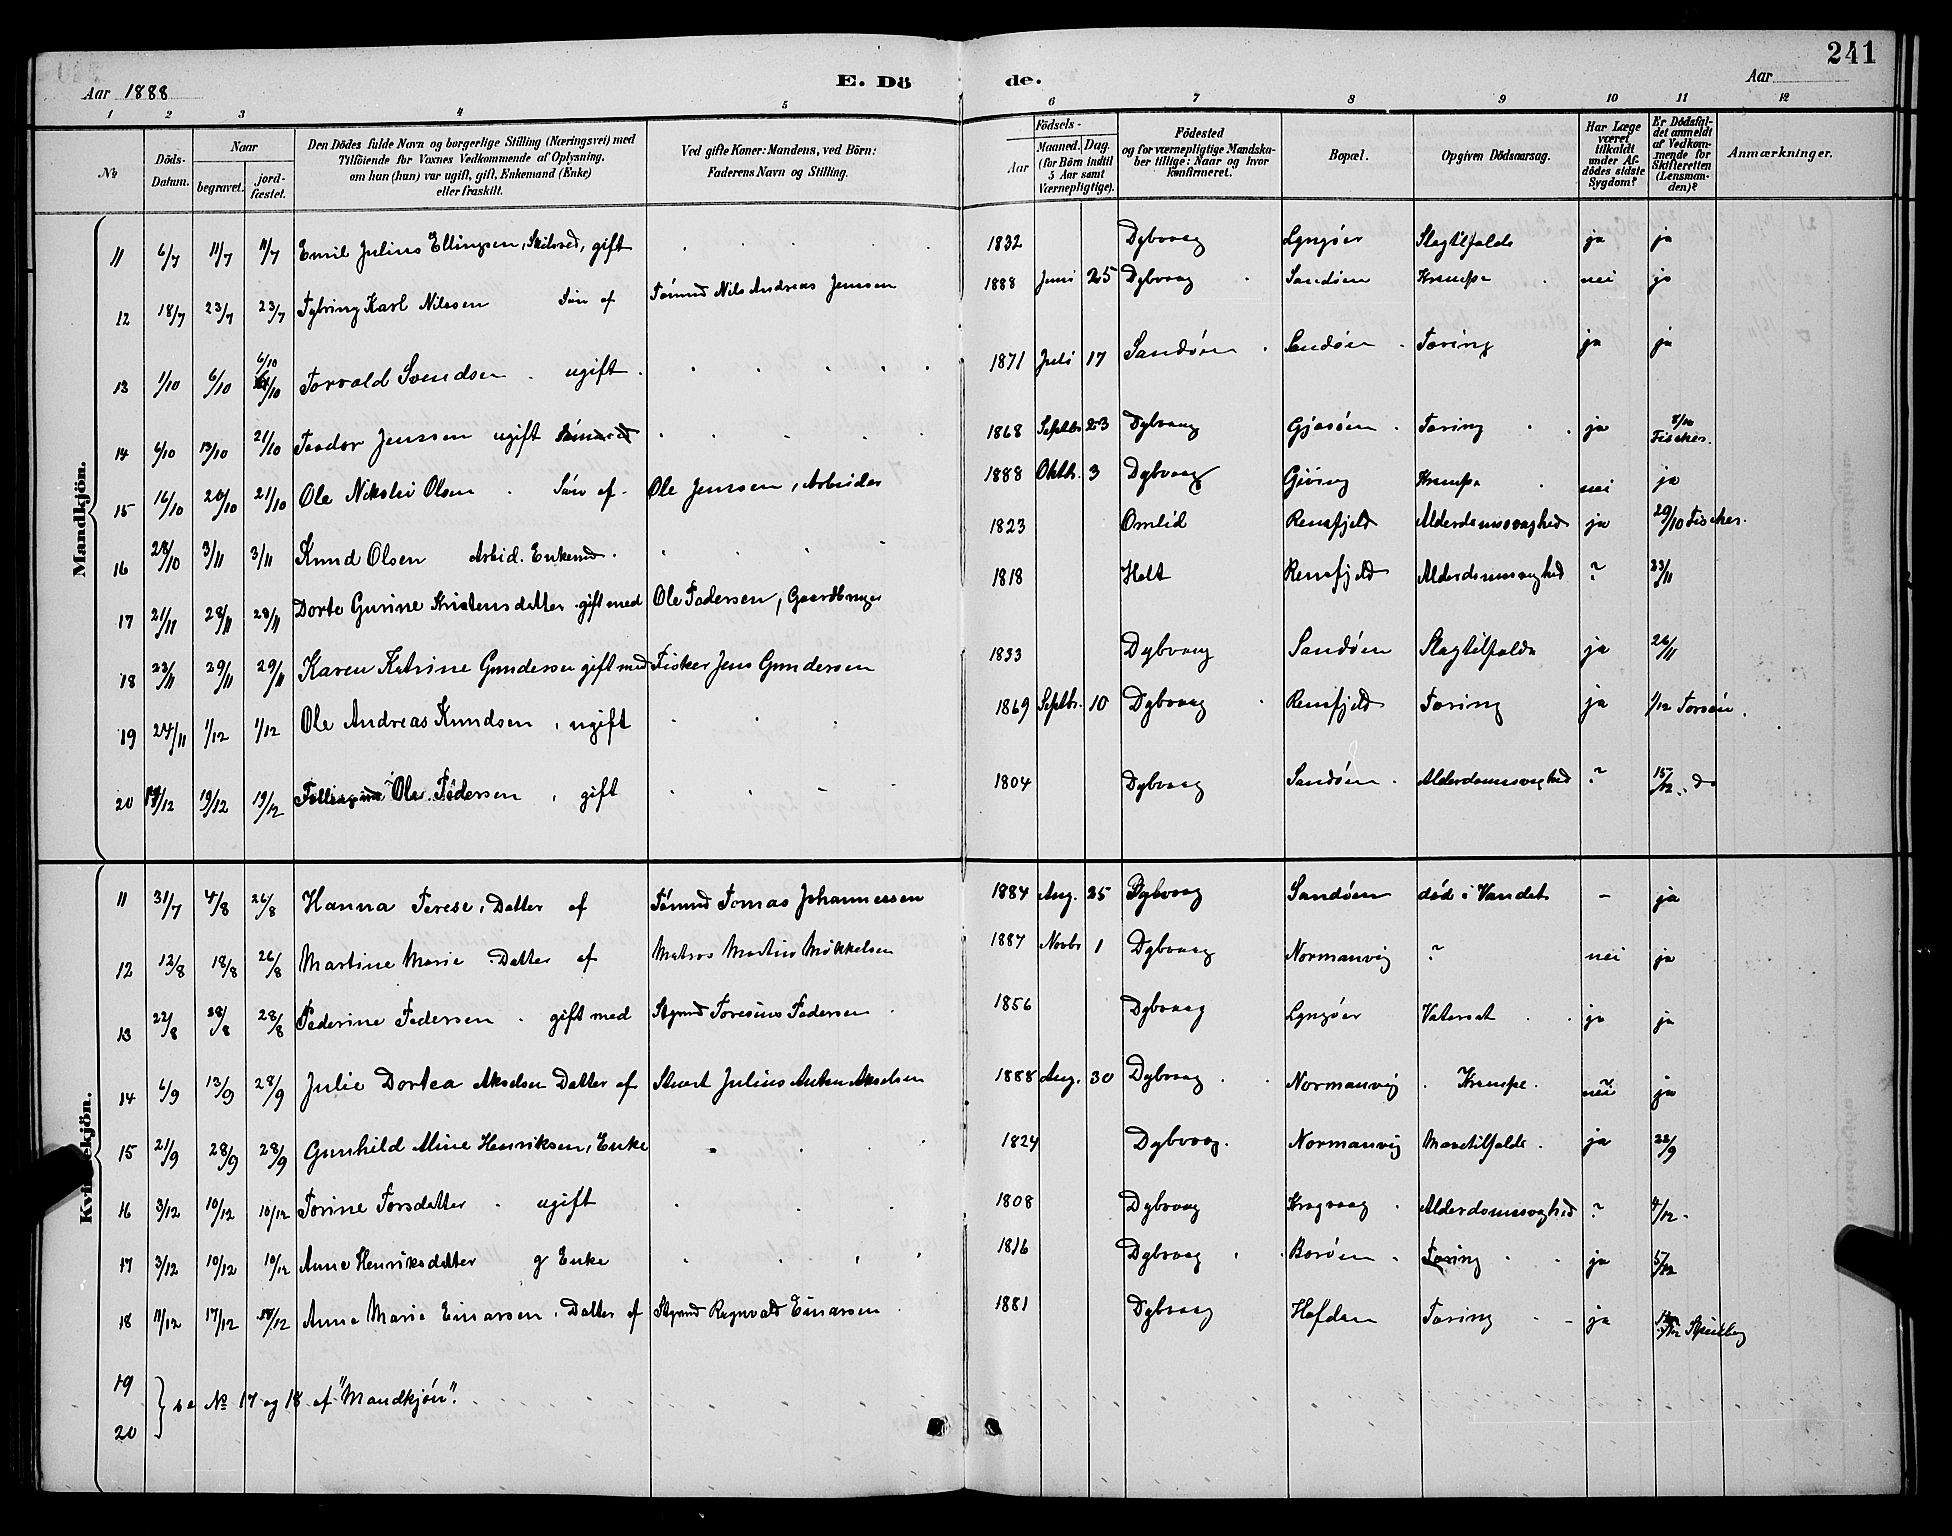 241
Aar 1888 E. Dö de. Aar
1 2 3 4 5 6 7 8 9 10 11 12
No Döds-Datum. Naar begravet. jordfæstet. Den Dödes fulde Navn og borgerlige Stilling (Næringsvei) med Tilföiende for Voxnes Vedkommende af Oplysning, om han (hun) var ugift, gift, Enkemand (Enke) eller fraskilt. Ved gifte Koner: Mandens, ved Börn: Faderens Navn og Stilling. Födsels- Aar Maaned. Dag. (for Börn indtil 5 Aar samt Værnepligtige). Födested og for værnepligtige Mandskaber tillige: Naar og hvor konfirmeret. Bopæl. Opgiven Dödsaarsag. Har Læge været tilkaldt under Afdödes sidste Sygdom? Er Dödsfaldet anmeldt af Vedkommende for Skifteretten (Lensmanden)? Anmærkninger.
Mandkjön.
11 6/7 11/7 11/7 Emil Julius Ellingsen, gift 1832 Dybvaag Lyngøer Slagtilfælde ja ja
12 18/7 23/7 23/7 Karl Nilssen Søn af Tømmd Nils Andreas Jenssen 1888 Juni 25 Dybvaag Sandøen Krampe nei ja
13 1/10 6/10 6/10 Torvald Svendsen ugift 1871 Juli 17 Sandøen Sandøen Tæring ja ja
14 6/10 13/10 21/10 Teodor Jenssen ugift Sømand 1868 Septbr 23 Dybvaag Gjæsøen Tæring ja 8/10 Fischer.
15 16/10 20/10 21/10 Ole Nikolai Olsen Søn af Ole Jenssen, Arbeider 1888 Oktb. 3 Dybvaag Gjeving Krampe nei ja
16 28/10 3/11 3/11 Knud Olsen Arbid. Enkemd 1823 Omlid Rensfjeld Alderdomssvaghed ja 29/10 Fischer.
17 21/11 28/11 28/11 Dorte Gurine Kristensdatter gift med Ole Pedersen, Gaardbruger 1818 Holt Rensfjeld Alderdomssvaghed ? 23/11
18 23/11 29/11 29/11 Karen Katrine Gundersen gift med Fisker Jens Gundersen 1833 Dybvaag Sandøen Slagtilfælde ja 26/11
19 24/11 1/12 1/12 Ole Andreas Knudsen, ugift 1869 Septbr. 10 Dybvaag Rensfjeld Tæring ja 1/12
20 14/12 19/12 19/12 Ole Pedersen, gift 1804 Dybvaag Sandøen Alderdomssvaghed ? 15/12 do
Kvindekjön.
11 31/7 4/8 26/8 Hanna Terese, Datter af Tømmd Tomas Johannessen 1884 Aug. 25 Dybvaag Sandøen død i Vandet - ja
12 12/8 18/8 26/8 Martine Marie Datter af Matros Martin Mikkelsen 1887 Novbr 1 Dybvaag Normanvig ? nei ja
13 22/8 28/8 28/8 Pederine Pedersen gift med Styrmd Toresius Pedersen 1856 Dybvaag Lyngøer Vatersot ja ja
14 6/9 13/9 28/9 Julie Dortea Akselsen Datter af Stuert Julius Anton Akselsen 1888 Aug. 30 Dybvaag Normanvig Krampe. nei ja
15 21/9 28/9 28/9 Gunhild Aline Henriksen, Enke 1824 Dybvaag. Normanvig Mavetilfælde. ja 22/9
16 3/12 10/12 10/12 Torine Torsdatter ugift 1808 Dybvaag Kragvaag Alderdomssvaghed ? 4/12
17 3/12 10/12 10/12 Anne Henriksdatter g Enke 1816 Dybvaag Borøen Tæring ja 5/12
18 11/12 17/12 18/12 Anne Marie Einarsen, Datter af Styrmd Ragnvald Einarsen 1881 Dybvaag Hafdan Tæring ja
19
20 } se No 17 og 18 af "Mandkjøn".